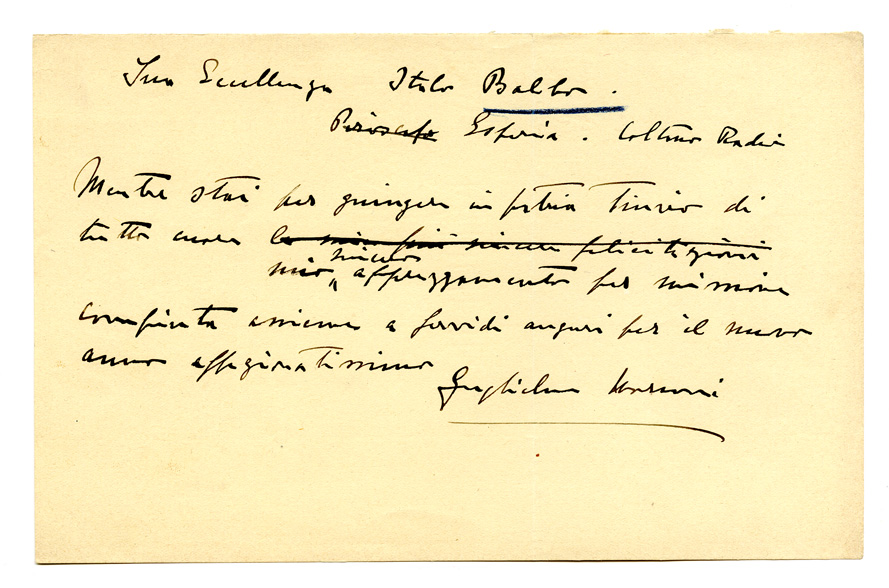 Sua Eccellenza Italo Balbo.
Piroscafo Esperia. Coltano Radio
Mentre stai per giungere in patria t'invio di
tutto cuore le mie più sincere felicitazioni
sincero
mio apprezzamento per missione
compiuta assieme a fervidi auguri per il nuovo
anno affezionatissimo
Guglielmo Marconi